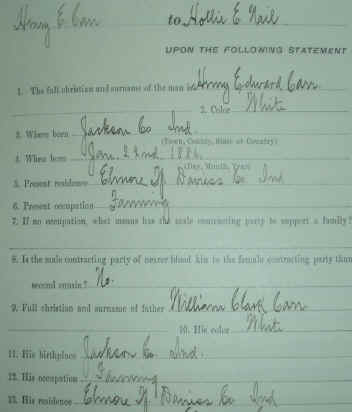 Henry E. Carr to Hollie E Nail
UPON THE FOLLOWING STATEMENT
1. The full christian and surname of the man is Henry Edward Carr
2. Color White
3. Where born Jackson Co Ind.
(Town, County, State or Country)
4. When born Jan. 22nd. 1886.
(Day, Month, Year)
5. Present residence Elmore Tp Daviess Co. Ind
6. Present occupation Farming
7. If no occupation, what means has the male contracting party to support a family?
8. Is the male contracting party of nearer blood kin to the female contracting party than
second cousin? No.
9. Full christian and surname of father William Clark Carr
10. His color White
11. His birthplace Jackson Co. Ind.
12. His occupation Farming
13. His residence Elmore Tp Daviess Co Ind